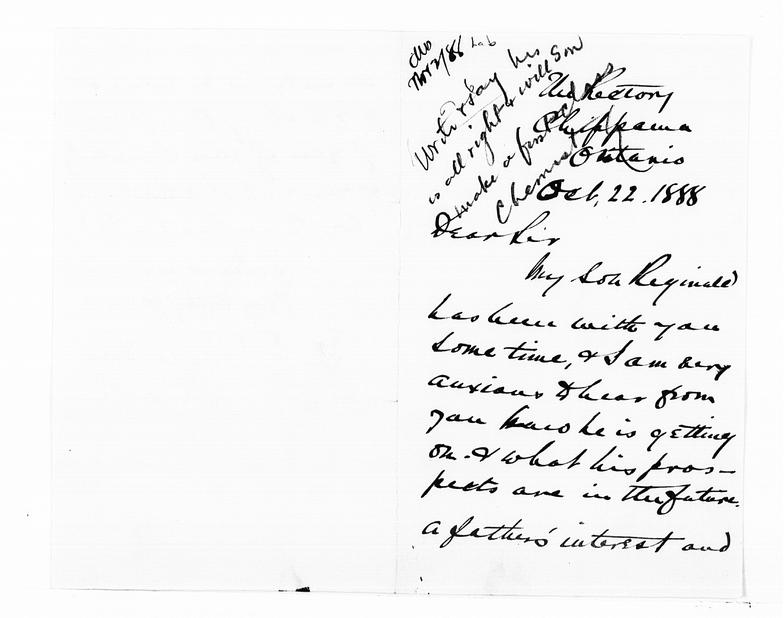 Nov 2/88 Lab
Write & say his son
is all right & will
make a first class
Chemist
The Rectory
Chippawa
Ontario
Oct, 22. 1888
Dear Sir
My Son Reginald
has been with you
some time, & I am very
anxious to hear from
you how he is getting
on. & what his pros-
pects are in the future.
A father's interest and